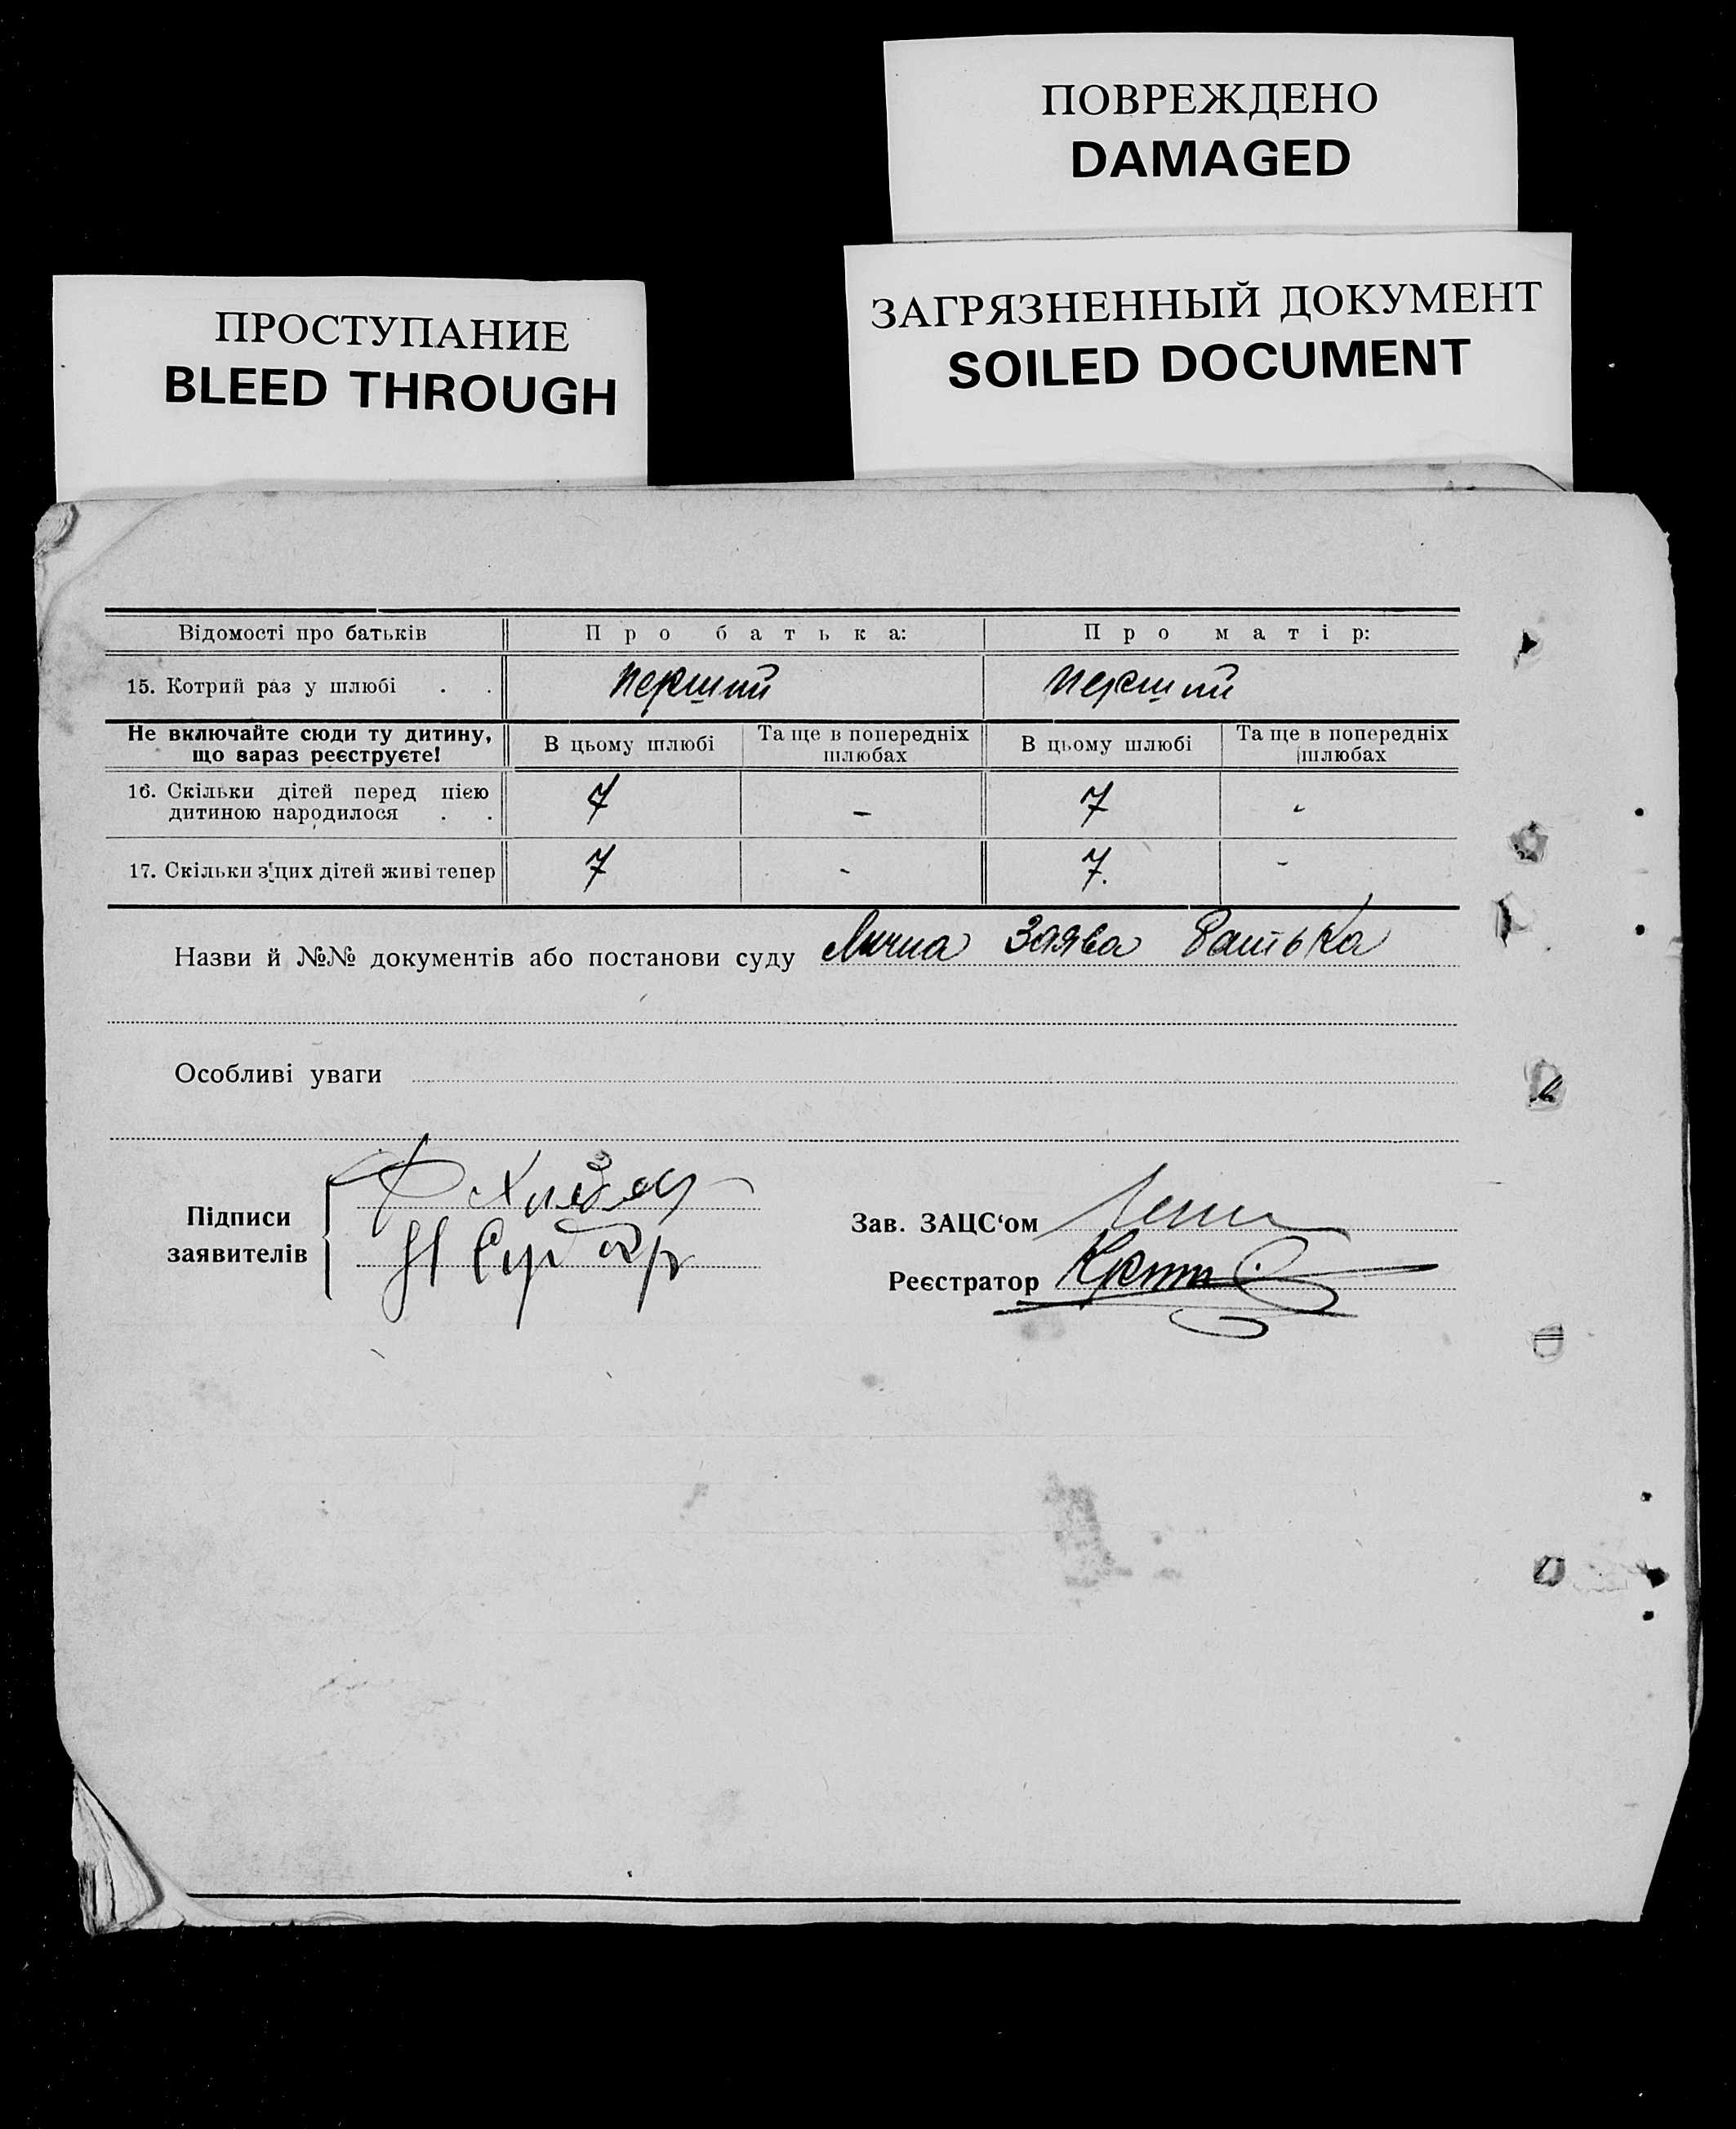 ПОВРЕЖДЕНО
DAMAGED
ЗАГРЯЗНЕННЫЙ ДОКУМЕНТ
SOILED DOCUMENT
ПРОСТУПАНИЕ
BLEED THROUGH
Відомості про батьків Про батька: Про матір:
15. Котрий раз у шлюбі . . перший перший
Не включайте сюди ту дитину, що вараз реєструєте!
В цьому шлюбі Та ще в попередніх шлюбах В цьому шлюбі Та ще в попередніх шлюбах
16. Скільки дітей перед цією
дитиною народилося . . 7 - 7 -
17. Скільки з цих дітей живі тепер 7 - 7. -
Назви й №№ документів або постанови суду Лична Заява батька
Особливі уваги
Підписи
заявителів
Зав. ЗАЦС‘ом
Реєстратор